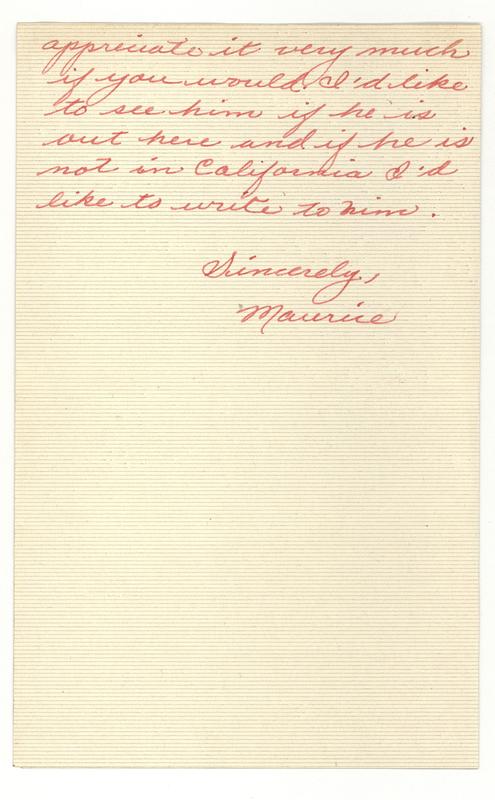 appreciate it very much
if you would. I'd like
to see him if he is
out here and if he is
not in California I'd
like to write to him.
Sincerely,
Maurice